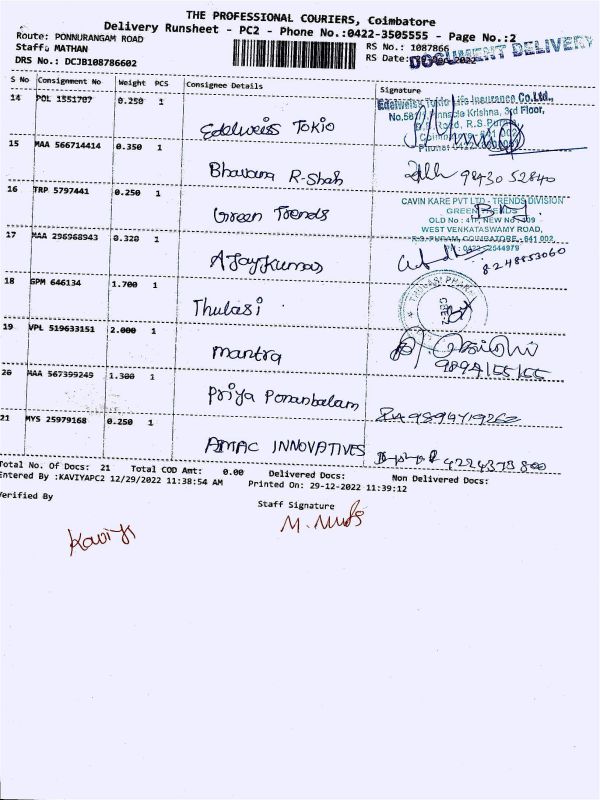 THE PROFESSIONAL COURIERS, Coimbatore
Delivery Runsheet - PC2 - Phone No.:0422-3505555 - Page No.:2
Route: PONNURANGAM ROAD
RS No.: 1087866
Staff: MATHAN
RS Date:
DOCUMENT DELIVERY
DRS No.: DCJB108786602
S No Consignment No Weight PCS Consignee Details Signature
14 POL 1551707 0.250 1 Edelweiss Tokio
Edelweiss Tokio Life Insurance Co.Ltd.,
Krishna, 3rd Floor,
15 MAA 566714414 0.350 1 Bhavana R-Shah 98430 52840
16 TRP 5797441 0.250 1 Green Trends
CAVIN KARE PVT LTD - TRENDS DIVISION
GREEN TRENDS
OLD No : 417, NEW No : 309
WEST VENKATASWAMY ROAD,
R.S. PURAM, COIMBATORE - 641 002
PH : 0422 - 2544979
17 MAA 296968943 0.320 1 AJaykumar 8248853060
18 GPM 646134 1.700 1 Thulasi
19 VPL 519633151 2.000 1 Mantra
20 MAA 567399249 1.300 1 Priya Ponanbalam
21 MYS 25979168 0.250 1 AMAC INNOVATIVES
Total No. Of Docs: 21 Total COD Amt: 0.00 Delivered Docs: Non Delivered Docs:
Entered By :KAVIYAPC2 12/29/2022 11:38:54 AM Printed On: 29-12-2022 11:39:12
Verified By
Staff Signature
Kaviya